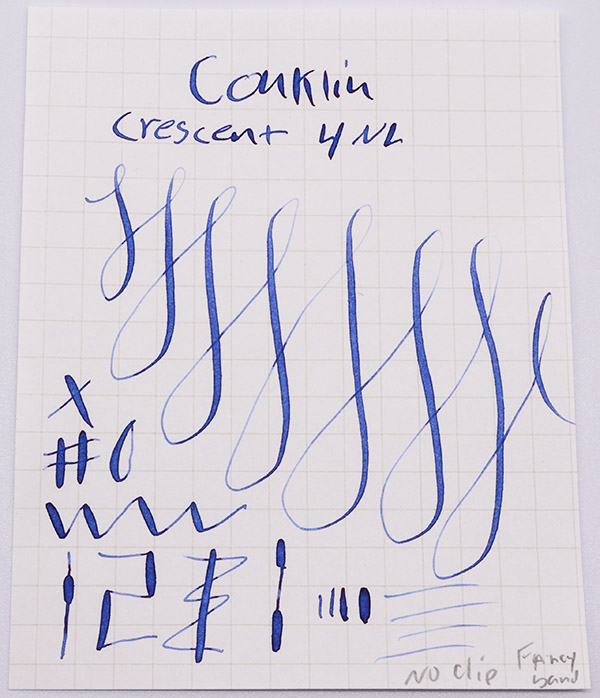 Conklin
Crescent 4 NL
X
#0
No clip
Fancy band